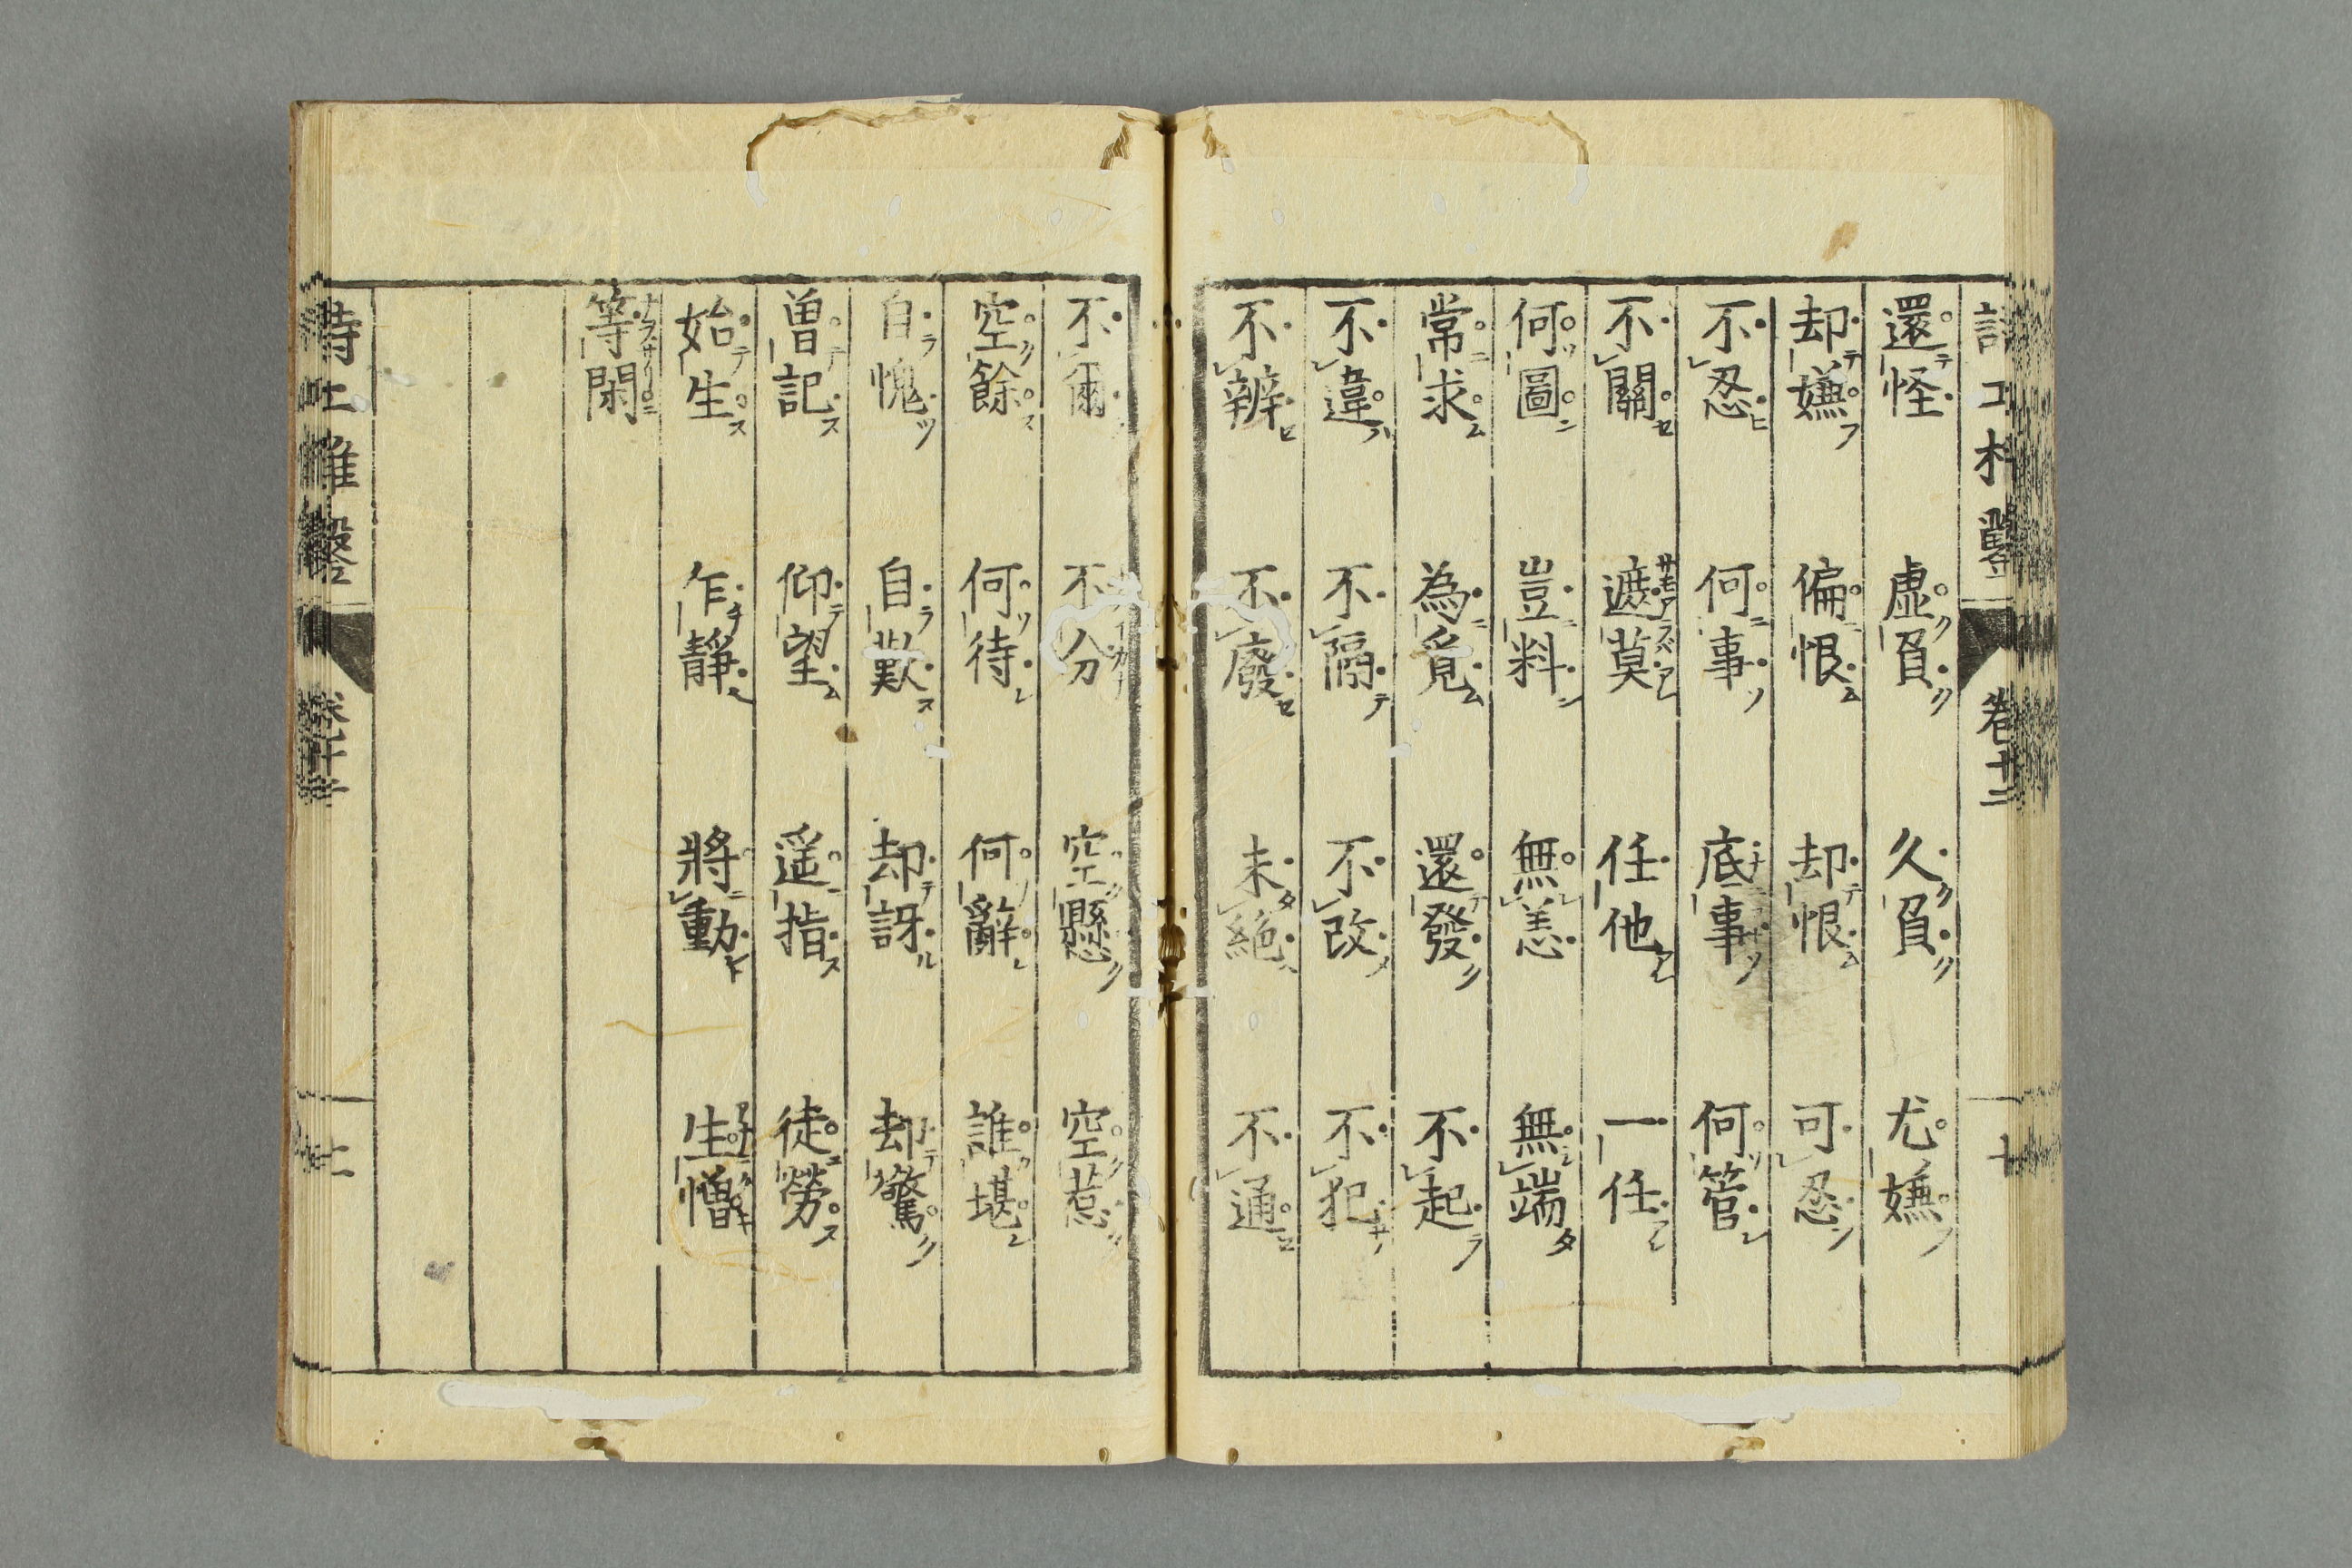 還怪 虛負 久負 尤嫌
却嫌 偏恨 却恨 可忍
不忍 何事 底事 何管
不關 遮莫 任他 一任
何圖 豈料 無恙 無端
常求 為覓 還發 不起
不違 不隔 不改 不犯
不辨 不廢 未絕 不通
不爾 不分 空懸 空惹
空餘 何待 何辭 誰堪
自愧 自歎 却訝 却驚
曽記 仰望 遥指 徒勞
始生 乍靜 將動 生憎
等閑